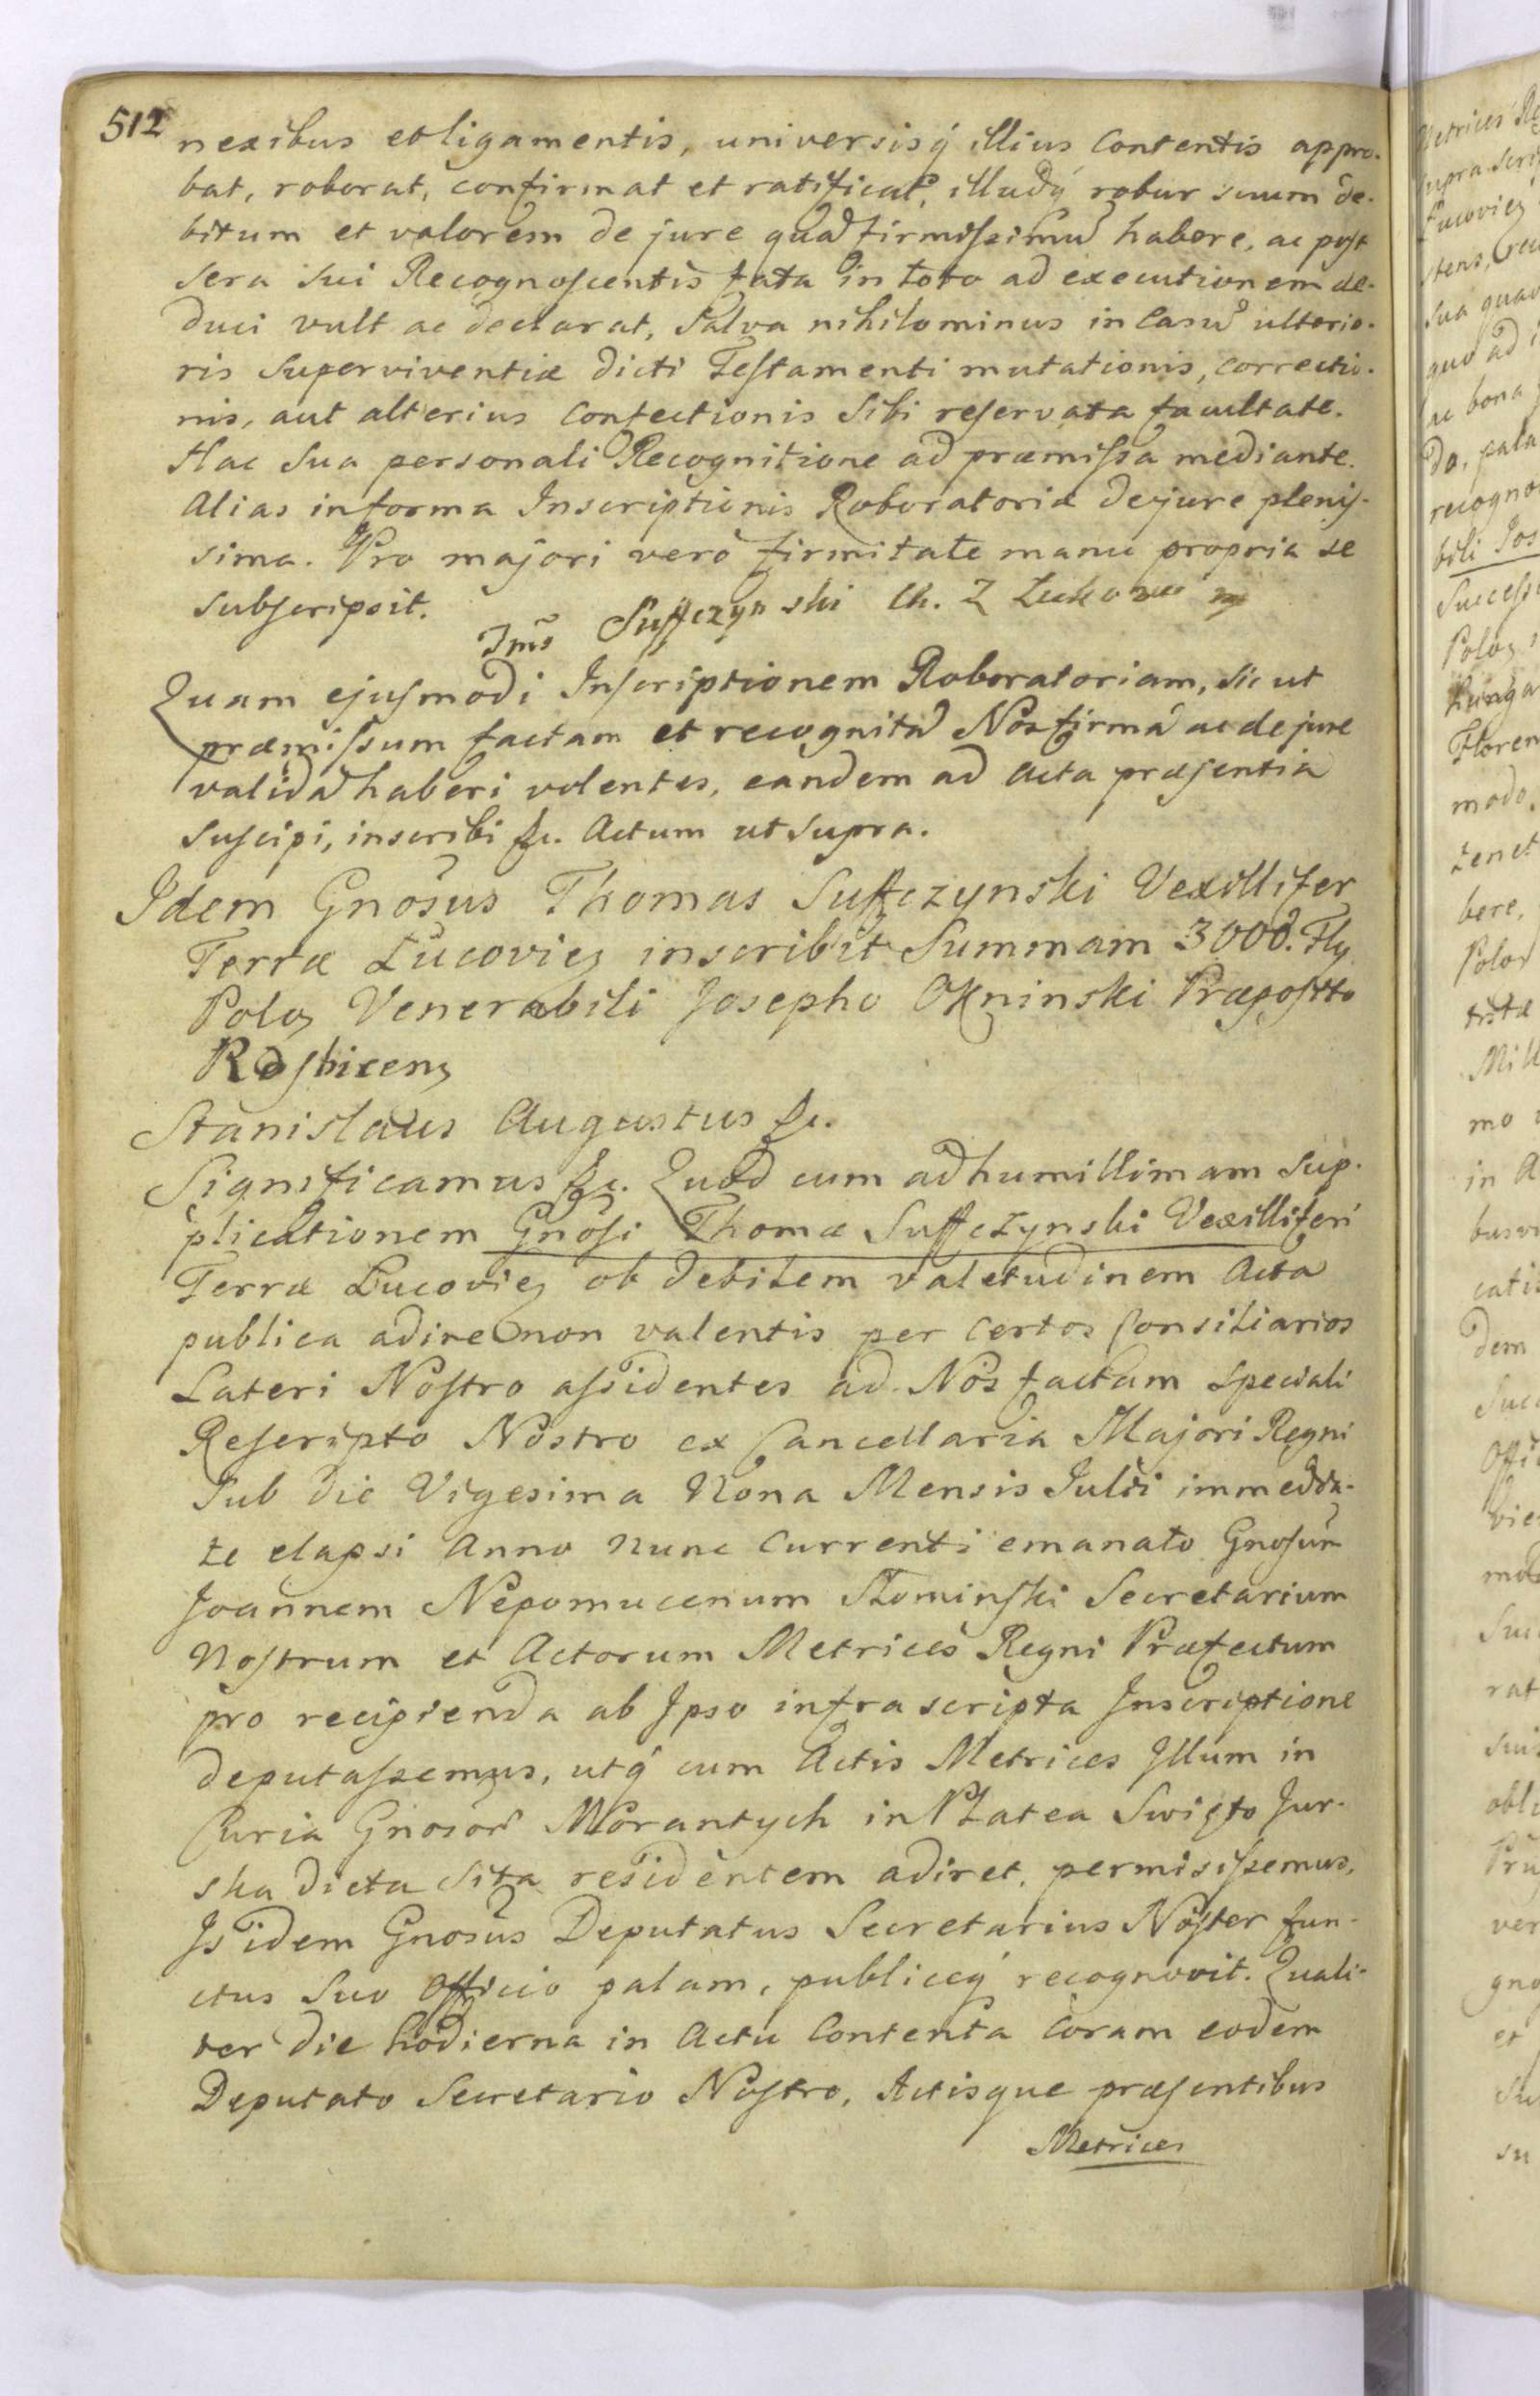 512
nexibus et ligamentis, universisq́ illius Contentis appro-
bat, roborat, confirmat et ratificat, illudq́ robur suum de-
bitum et valorem de jure quaḋ firmissimū habere, ac post
sera sui Recognoscentis fata in toto ad executionem de-
duci vult ac declarat, Salva nihilominus in Casū ulterio-
ris Superviventiæ dicti Testamenti mutationis, correctio-
nis, aut alterius Confectionis Sibi reservata facultate.
Hac Sua personali Recognitione ad præmissa mediante.
Alias in forma Inscriptionis Roboratoriæ de jure plenis-
sima. Pro majori verò firmitate manu propria se
subscripsit.
Tms Suffczynski Ch. Z Lukows mp
Quam ejusmodi Inscriptionem Roboratoriam, sic ut
præmissum factam et recognitā Nos firmā ac de jure
validā haberi volentes, eandem ad Acta præsentia
Suscipi, inscribi &c. Actum ut supra.
Idem Gnosus Thomas Suffczynski Vexillifer
Terræ Lucovien inscribit Summam 3000. Fl
Polo Venerabili Josepho Okninski Præposito
Stanislaus Augustus &c.
Significamus &c. Quod cum ad humillimam Sup-
plicationem Gnosi Thomæ Suffczynski Vexilliferi
Terræ Lucovien ob debilem valetudinem Acta
publica adire non valentis per certos Consiliarios
Lateri Nostro assidentes ad Nos factam Speciali
Rescripto Nostro ex Cancellaria Majori Regni
Sub die Vigesima Nona Mensis Julii immedia-
te elapsi Anno nunc Currenti emanato Gnosum
Joannem Nepomucenum Słominski Secretarium
Nostrum et Actorum Metrices Regni Præfectum
pro recipienda ab Ipso infrascripta Inscriptione
deputassemus, utq́ cum Actis Metrices Illum in
Curia Gnosor Morantych in Platea Swięto Jur-
ska dicta Sita residentem adiret, permisissemus.
Is idem Gnosus Deputatus Secretarius Noster fun-
ctus Suo Officio palam, publiceq́ recognovit. Quali-
ter die hodierna in Actu Contenta Coram eodem
Deputato Secretario Nostro, Actisque præsentibus
Metrices